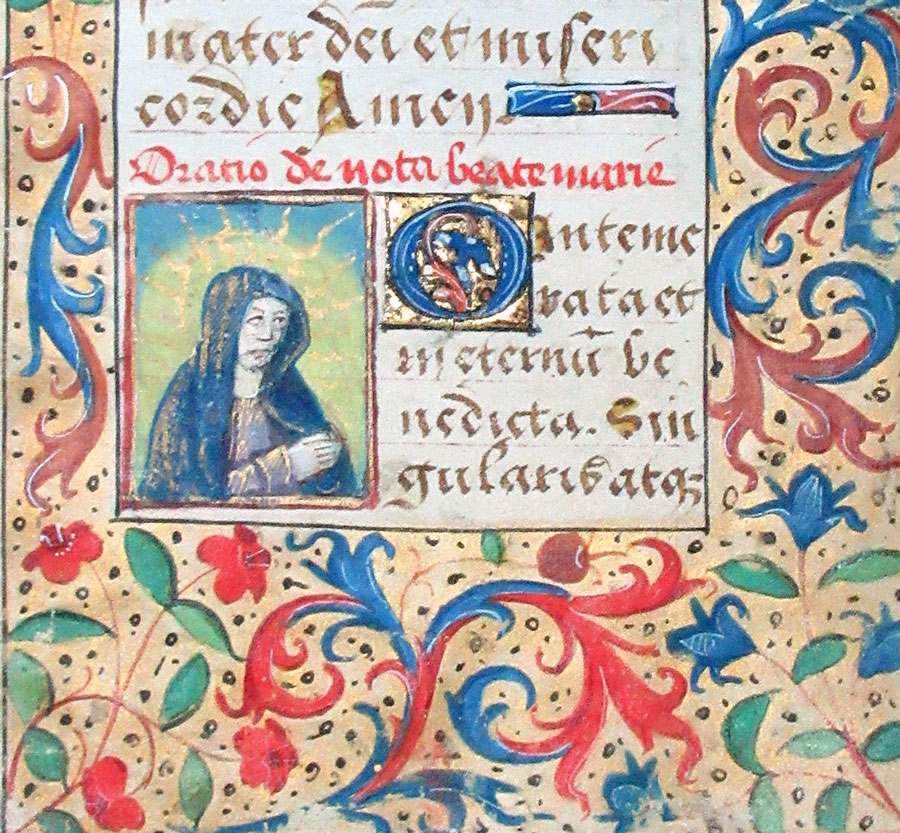 mater dei et miseri
cordie Amen
Oratio de nota beate marie
O intemε
rata et
in eternū be
nedicta. Sin
gularis atq3